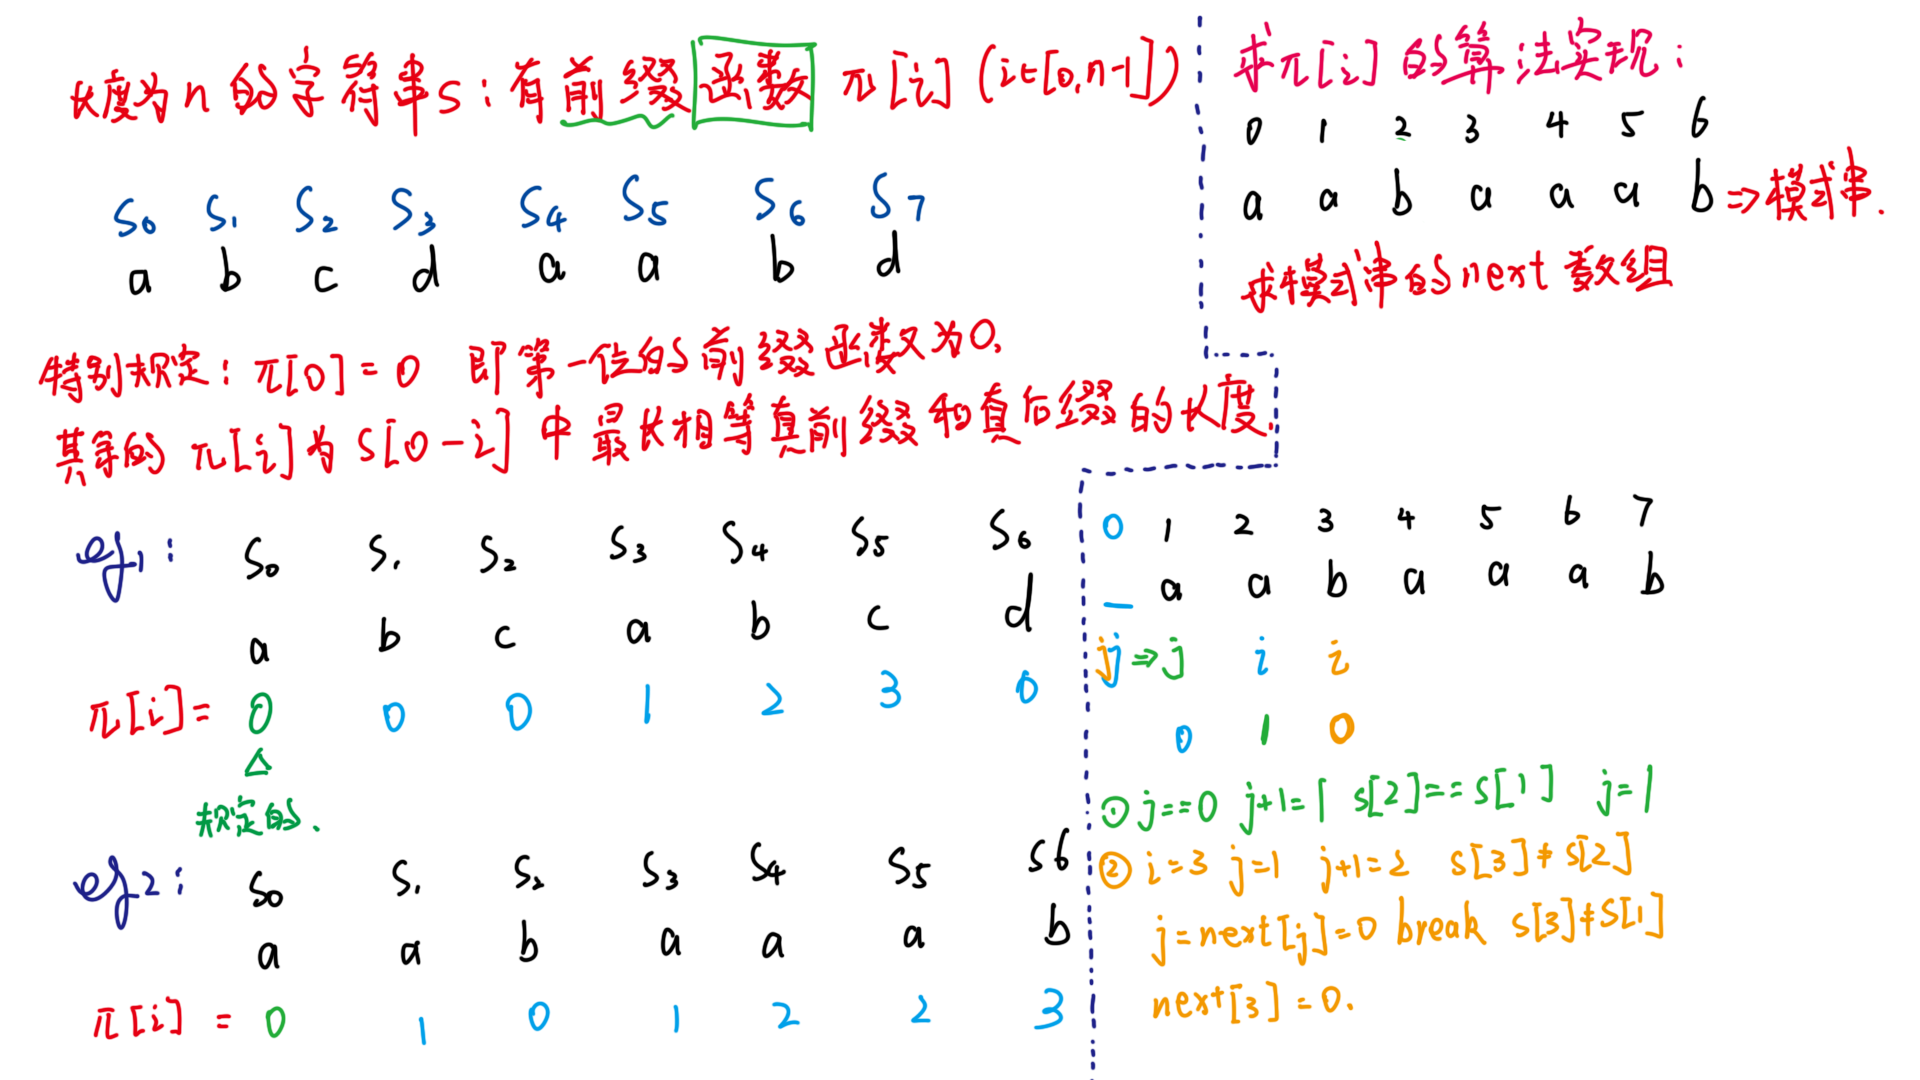 长度为n的字符串s:有前缀函数 π[i] (i∈[0,n-1])
S0 S1 S2 S3 S4 S5 S6 S7
a b c d a a b d
特别规定: π[0]=0 即第一位的前缀函数为0,
其余的 π[i]为 S[0-i] 中最长相等真前缀和真后缀的长度.
eg1: S0 S1 S2 S3 S4 S5 S6
a b c a b c d
π[i]= 0 0 0 1 2 3 0
△
规定的.
eg2: S0 S1 S2 S3 S4 S5 S6
a a b a a a b
π[i] = 0 1 0 1 2 2 3
求π[i]的算法实现:
0 1 2 3 4 5 6
a a b a a a b ⇒模式串.
求模式串的next数组
0 1 2 3 4 5 6 7
— a a b a a a b
j j ⇒ j i i
0 1 0
① j==0 j+1=1 s[2]==s[1] j=1
② i=3 j=1 j+1=2 s[3]≠s[2]
j=next[j]=0 break s[3]≠s[1]
next[3]=0.